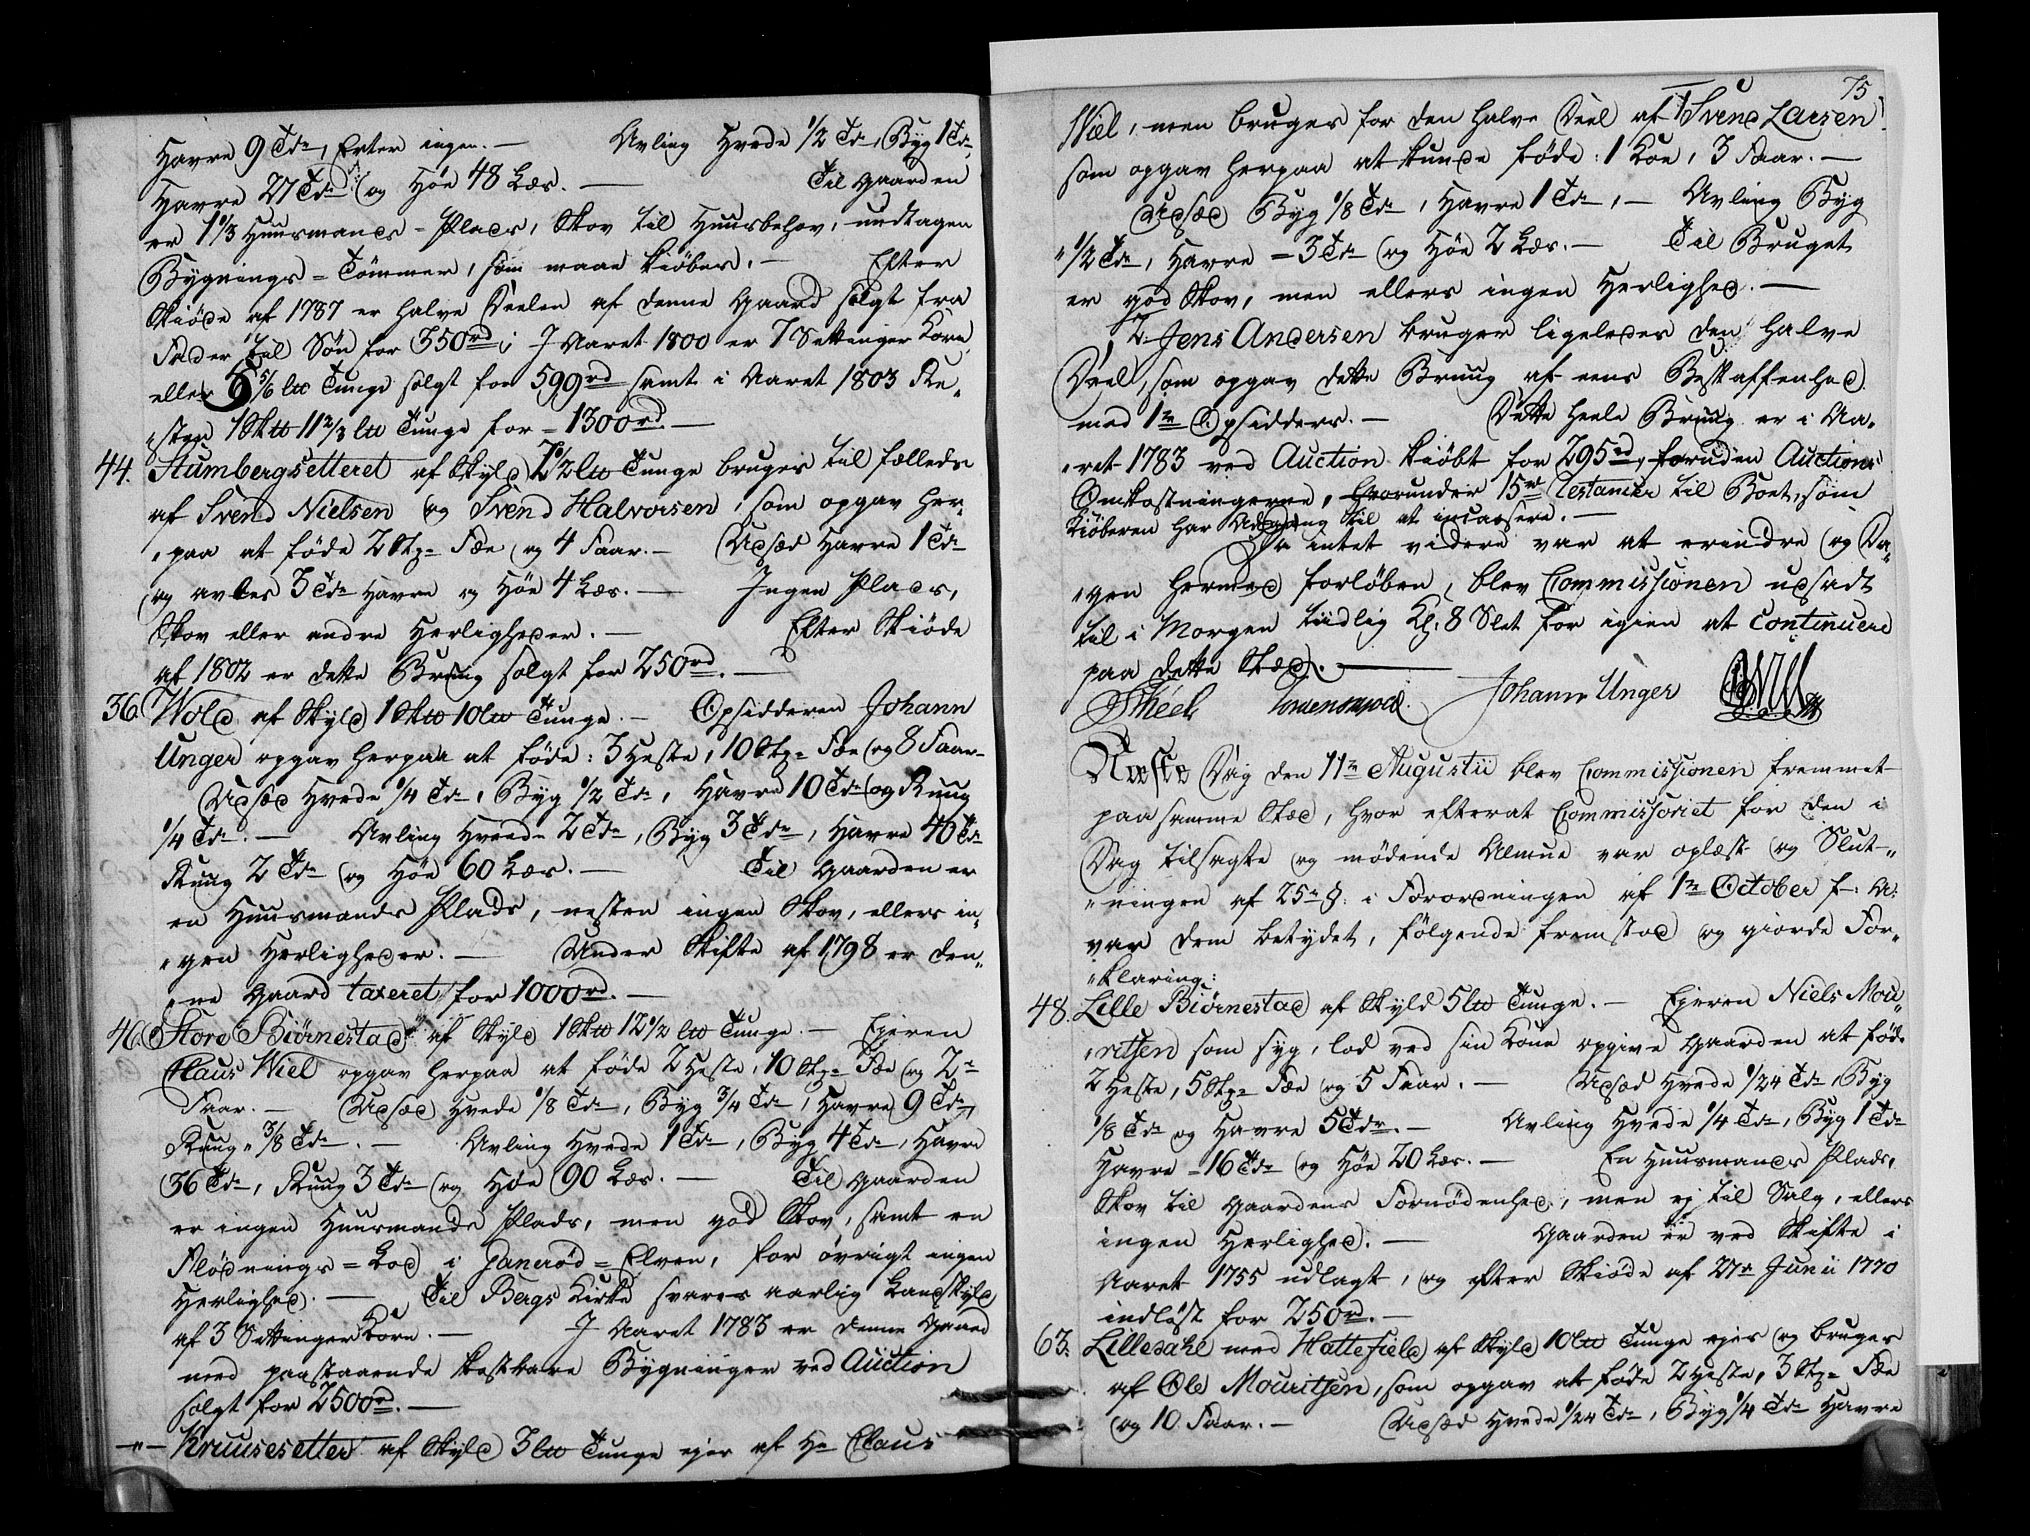 Havre 9 Tdr, Erter ingen. — Avling Hvede 1/2 Tdr, Byg 1 Tdr,
Havre 27 Tdr og Høe 48 Læs. — Til Gaarden
er 1 1/3 Huusmands-Plads, Skov til Huusbehov, undtagen
Bygnings-Tømmer, som maae kiøbes. — Efter
Skiøde af 1787 er halve Deelen af denne Gaard solgt fra
Fader til Søn for 350 rd; I Aaret 1800 er 7 Settinger Korn
eller 5 5/6 lb Tunge solgt for 599 rd samt i Aaret 1803 Re„
„sten 1 Skb 11 2/3 lb Tunge for = 1300 rd. —
44. Stumbergsetteret af Skyld 1 1/2 lb Tunge bruges til fælleds
af Svend Nielsen og Svend Halvorsen, som opgav her„
„paa at føde 2 Stk= Fæe og 4 Faar. — Udsæd Havre 1 Tdr
og avles 3 Tdr Havre og Høe 4 Læs. — Ingen Plads,
Skov eller andre Herligheder. — Efter Skiøde
af 1802 er dette Brug solgt for 250 rd. —
36. Wold af Skyld 1 Skb 10 lb Tunge. — Opsidderen Johann
Unger opgav herpaa at føde: 3 Heste, 10 Stk= Fæe og 8 Faar —
Udsæd Hvede 1/4 Tdr, Byg 1/2 Tdr, Havre 10 Tdr og Ruug
1/4 Tdr. — Avling Hvede 2 Tdr, Byg 3 Tdr, Havre 40 Tdr
Ruug 2 Tdr og Høe 60 Læs. — Til Gaarden er
en Huusmands Plads, nesten ingen Skov, ellers in„
„gen Herligheder. — Under Skifte af 1798 er den„
„ne Gaard taxeret for 1000 rd. —
46. Store Biørnestad af Skyld 1 Skb 12 1/2 lb Tunge. — Ejeren
Claus Wiel opgav herpaa at føde 2 Heste, 10 Stk= Fæe og 2
Faar. — Udsæd Hvede 1/8 Tdr, Byg 3/4 Tdr, Havre 9 Tdr,
Ruug „ 3/8 Tdr. — Avling Hvede 1 Tdr, Byg 4 Tdr, Havre
36 Tdr, Ruug 3 Tdr og Høe 90 Læs. — Til Gaarden
er ingen Huusmands Plads, men god Skov, samt en
Flødnings=Lod i Janerød=Elven, for øvrigt ingen
Herlighed. — Til Bergs Kirke svares aarlig Landskyld
af 3 Settinger Korn. — I Aaret 1783 er denne Gaard
med paastaaende kostbare Bygninger ved Auction
solgt for 2500 rd. —
—„— Kruusesetter af Skyld 3 lb Tunge ejes af Hr Claus
75
Wiel, men bruges for den halve Deel af 1. Svend Larsen
som opgav herpaa at kunde føde: 1 Koe, 3 Faar. —
Udsæd Byg 1/8 Tdr, Havre 1 Tdr, — Avling Byg
„1/2 Tdr, Havre = 3 Tdr og Høe 2 Læs. — Til Bruget
er god Skov, men ellers ingen Herlighed. —
2. Jens Andersen bruger ligeledes den halve
Deel, som opgav dette Bruug af eens Beskaffenhed
med 1te Opsidders. — Dette heele Bruug er i Aa„
„ret 1783 ved Auction kiøbt for 295 rd, foruden Auctions
Omkostningerne, hvorunder 15 rd Restancer til Boet, som
Kiøberen har Adgang til at incassere. —
Da intet videre var at erindre og Da„
„gen hermed forløben, blev Commissionen udsadt
til i Morgen tiidlig Kl: 8 Slet for igien at continuere
paa dette Stæd. —
Skeel Lowenskiold. Johann Unger
Næste Dag den 11te Augustii blev Commissionen fremmet
paa samme Stæd, hvor efterat Commissoriet for den i
Dag tilsagte og mødende Almue var oplæst og Slut„
„ningen af 25de §. i Forordningen af 1te October f: A:
var dem betydet, følgende fremstod og giorde For„
„klaring:
48. Lille Biørnestad af Skyld 5 lb Tunge. — Ejeren Niels Mou„
„ritsen som syg, lod ved sin Kone opgive Gaarden at føde
2 Heste, 5 Stk= Fæe og 5 Faar. — Udsæd Hvede 1/24 Tdr, Byg
1/8 Tdr og Havre 5 Tdr. — Avling Hvede 1/4 Tdr, Byg 1 Tdr
Havre = 16 Tdr og Høe 20 Læs. — En Huusmands Plads,
Skov til Gaardens Fornødenhed, men ej til Salg, ellers
ingen Herlighed. — Gaarden er ved Skifte i
Aaret 1755 udlagt, og efter Skiøde af 27de Junii 1770
indløst for 250 rd. —
63. Lilledahl med Hattefield af Skyld 10 lb Tunge ejes og bruges
af Ole Mouritsen, som opgav at føde 2 Heste, 3 Stk= Fæe
og 10 Faar. — Udsæd Hvede 1/24 Tdr, Byg 1/4 Tdr Havre